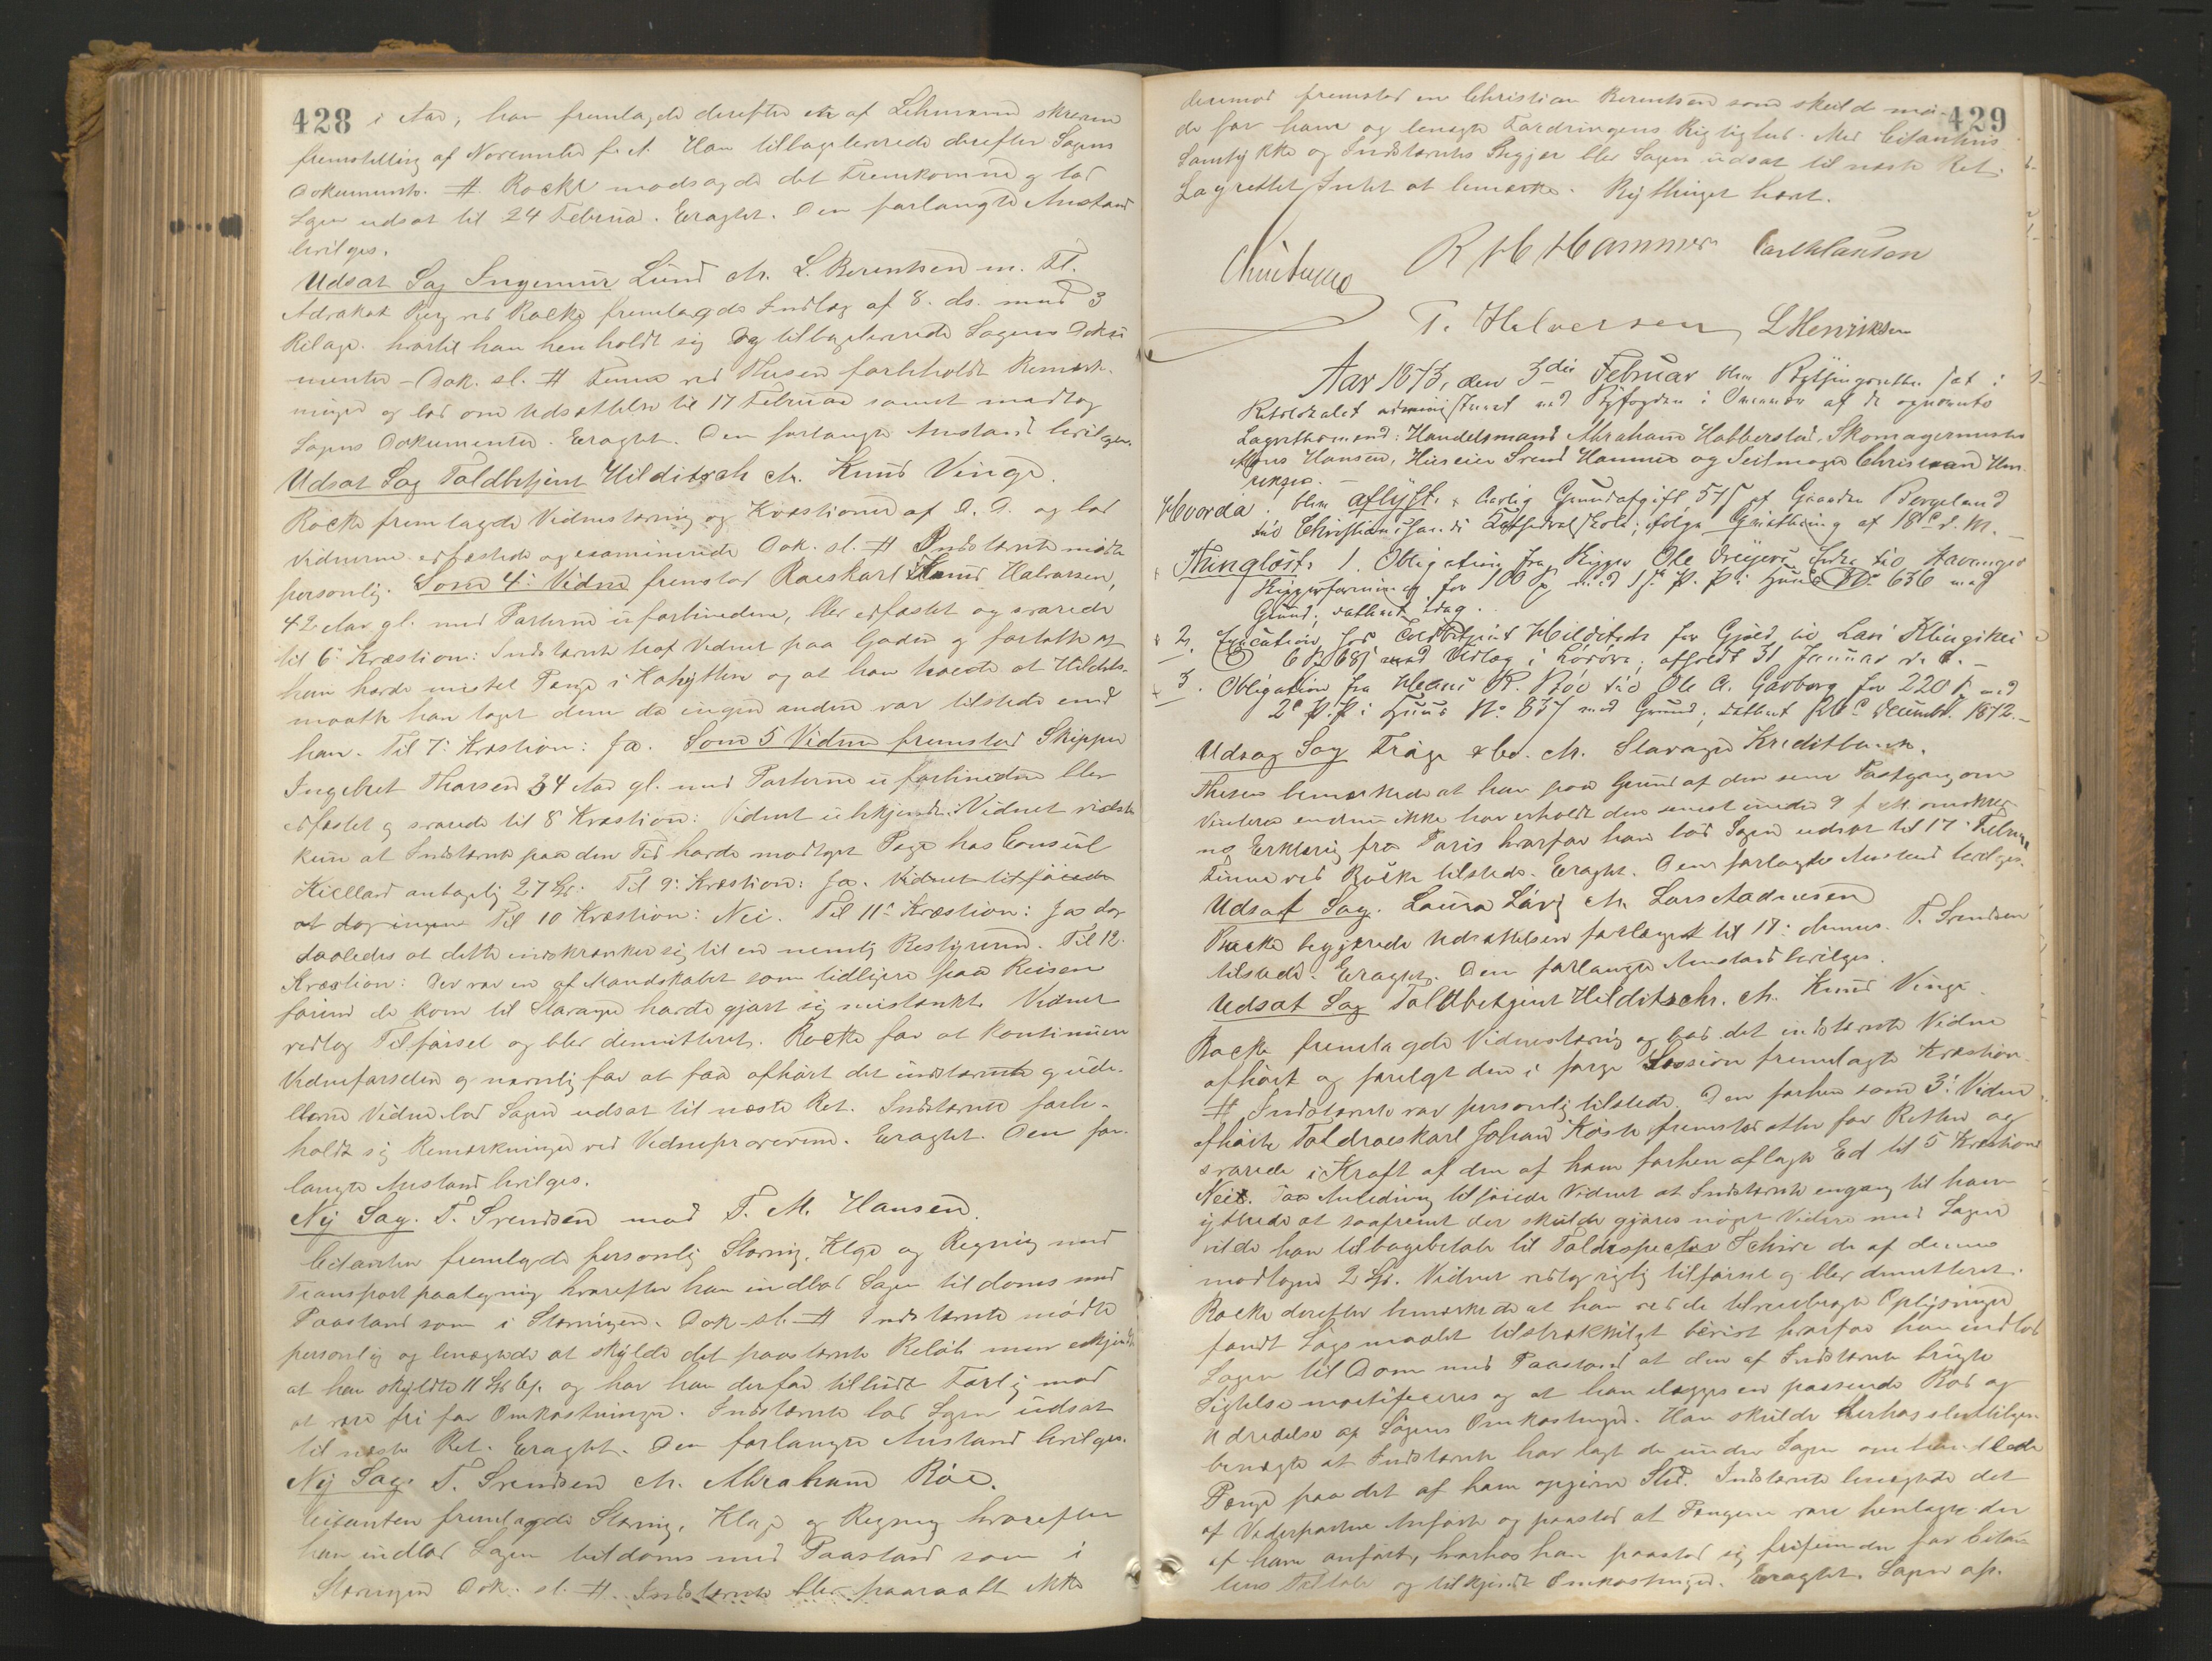 428
i Aar, han fremlagde derefter en af Lehmann skreven
fremstilling af November f. A. Han tilbageleverede derefter Sagens
Dokumenter. # Backe modsagde det Fremkomne og bad
Sagen udsat til 24 Februar. Eragtet. Den forlangte Anstand
bevilges.
Udsat Sag Ingemur Lund ctr. L. Berentsen m. Fl.
Advokat Berg ved Backe fremlagde Indlæg af 8. ds. med 3
Bilage. hvortil han henholdt sig og tilbageleverede Sagens Doku
menter – Dok. sl. # Finne ved Thesen forbeholdt Bemærk-
ninger og bad om Udsættelse til 17 Februar samt modtog
Sagens Dokumenter. Eragtet. Den forlangte Anstand bevilges.
Udsat Sag Toldbetjent Hilditsch ctr. Knud Vinge.
Backe fremlagde Vidnestævning og Kvæstioner af D. D. og bad
Vidnerne edfæstede og examinerede Dok. sl. # Indstævnte mødte
personlig. Som 4: Vidne fremstod Raeskarl Knud Halvorsen,
42 Aar gl. med Parterne uforbunden, blev edfæstet og svarede
til 6: Kvæstion: Indstævnte traf Vidnet paa Gaden og fortalte at
han havde mistet Penge i Kahytten og at han troede at Hildits-
maatte han taget dem da ingen anden var tilstede end
han. Til 7: Kvæstion: Ja. Som 5 Vidne fremstod Skipper
Ingebret Thorsen 34 Aar gl. med Parterne uforbunden blev
edfæstet og svarede til 8 Kvæstion: Vidnet ubekjendt. Vidnet vidste
kun at Indstævnte paa den Tid havde modtaget Penge hos Consul
Kielland antagelig 27 Spd: Til 9: Kvæstion: Ja. Vidnet tilføiede
at dog ingen Til 10 Kvæstion: Nei. Til 11: Kvæstion: Ja dog
saaledes at dette indskrænker sig til en nemlig Bestyrend. Til 12:
Kvæstion: Der var en af Mandskabet som tidligere paa Reisen
forinden de kom til Stavanger havde gjort sig mistænkt. Vidnet
vedtog Tilførsel og blev dimitteret. Backe for at kontinuere
Vidneførselen og navnlig for at faa afhørt det indstævnte og ude-
blevne Vidne bad Sagen udsat til næste Ret. Indstævnte forbe-
holdt sig Bemærkninger ved Vidneprovene. Eragtet. Den for-
langte Anstand bevilges.
Ny Sag. T. Svendsen mod T. M. Hansen.
Citanten fremlagde personlig Stævning, Klage og Regning med
Transportpaategning hvorefter han indlod Sagen til doms med
Paastand som i Stævningen. Dok. sl. # Indstævnte mødte
personlig og benægtede at skylde det paastævnte Beløb men erkjendte
at han skyldte 11 Spd 6 s. og har han derfor tilbudt Forlig mod
at være fri for Omkostninger. Indstævnte bad Sagen udsat
til næste Ret. Eragtet. Den forlangte Anstand bevilges.
Ny Sag. T. Svendsen ctr. Abraham Böe.
Citanten fremlagde Stævning, Klage og Regning hvorefter
han indlod Sagen til doms med Paastand som i
Stævningen Dok. sl. #. Indstævnte blev paaraabt ikke
429
derimod fremstod en Christian Berentsen som skulde mö-
de for ham og benægte Fordringens Rigtighed. Med Citantens
Samtykke og Indstævntes Begjær blev Sagen udsat til næste Ret.
Lagrettet Intet at bemærke. Bythinget hævet.
R H Hammer Carl Clausen
T. Halversen, L Henriksen
Aar 1873, den 3die Februar blev Bythingsretten sat i
Retslokalet administreret ved Byfogden i Overvær af de opnævnte
Lagrettesmænd: Handelsmand Abraham Habberstad, Skomagermester
Mons Hansen, Huseier Svend Hammer og Seilmager Christian Hen-
riksen. –
Hvorda. blev aflyst. Aarlig Grundafgift 57 s af Gaarden Bergeland
til Christiansands Kathedralskole; ifølge Qvittering af 18de d. M. –
Thinglæst. 1. Obligation fra Rigger Ole Dreyers Enke til Stavanger
Skipperforening for 100 Spd med 1ste P. P. i Huus No 636 med
Grund, dateret idag.
2. Execution hos Toldbetjent Hilditsch for Gjæld til Lars Klingsheie
6 Spd 68 s med Udlæg i Løsøre; afholdt 31 Januar d. A. –
3. Obligation fra Hans P. Böe til Ole A. Gavborg for 220 Spd med
2de P. P. i Huus No 837 med Grund; dateret 28de Decembr. 1872. –
Udsat Sag Fráge & Co. ctr. Stavanger Kreditbank.
Thesen bemærkede at han paa Grund af den sene Postgang om
Vinteren endnu ikke har erholdt den senest under 9 f. M. omskrev
ne Erklæring fra Paris hvorfor han bad Sagen udsat til 17: Februar
Finne ved Backe tilstede. Eragtet. Den forlangte Anstand bevilges.
Udsat Sag. Laura Lávig ctr. Lars Aadnesen
Backe begjærede Udsættelsen forlænget til 17: dennes. T. Svendsen
tilstede. Eragtet. Den forlangte Anstand bevilges.
Udsat Sag Toldbetjent Hilditsch. ctr. Knud Vinge.
Backe fremlagde Vidnestævning og bad det indstævnte Vidne
afhørt og forelagt den i forrige Session fremlagte Kvæstion.
# Indstævnte var personlig tilstede. Den forhen som 3: Vidne
afhørte Toldroeskarl Johan Koste fremstod atter for Retten og
svarede i Kraft af den af ham forhen aflagte Ed til 5 Kvæstion
Nei. Paa Anledning tilføiede Vidnet at Indstævnte engang til ham
yttrede at saafremt der skulde gjøres noget Videre med Sagen
vilde han tilbagebetale til Toldinspecteur Schive de af denne
modtagne 2 Spd. Vidnet vedtog rigtig tilførsel og blev dimitteret.
Backe derefter bemærkede at han ved de tilveiebragte Oplysninger
fandt Søgsmaalet tilstrækkeligt bevist hvorfor han indlod
Sagen til Dom med Paastand at den af Indstævnte brugte
Sigtelse mortificeres og at han ilægges en passende Bod og
Udredelse af Sagens Omkostninger. Han skulde derhos sluttelig
benægte at Indstævnte har lagt de under Sagen omhandlede
Penge paa det af ham opgivne Sted. Indstævnte benægtede det
af Vederparten Anførte og paastod at Pengene vare henlagte der
af ham anført, hvorhos han paastod sig frifunden for Citan
tens Tiltale og tilkjendt Omkostninger. Eragtet. Sagen op-